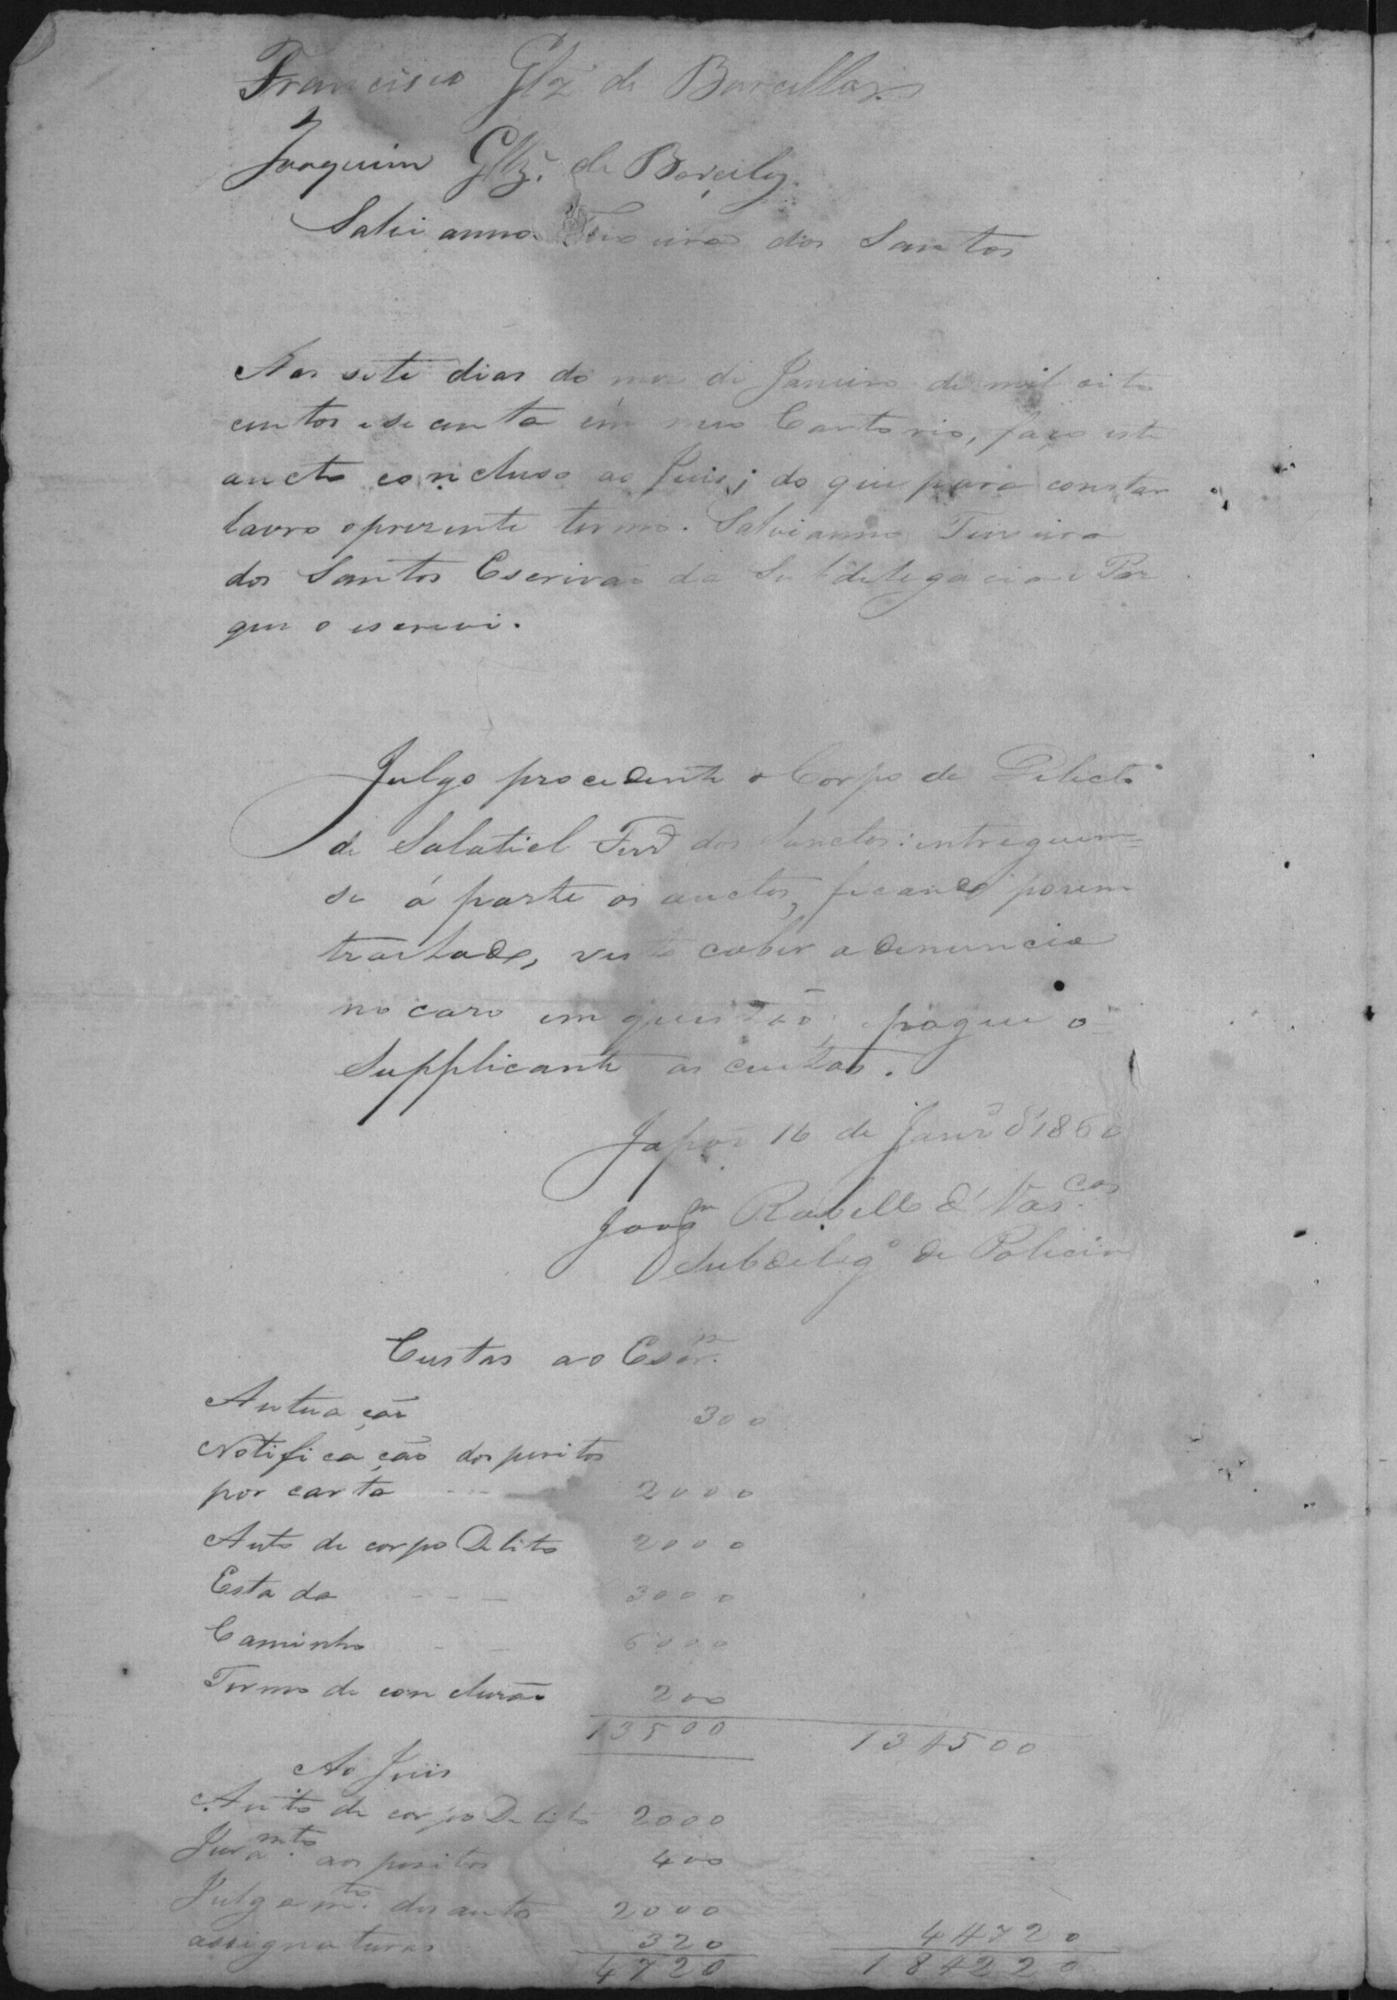 Francisco Glz de Barcellos
Joaquim Glz. de Barcelos
Salvianno Teixeira dos Santos
Aos sete dias do mez de Janeiro de mil oito
centos e secenta em meo Cartorio, faço este
aucto concluso ao Juis; do que para constar
lavro o prezente termo. Salvianno Teixeira
dos Santos Escrivão da Subdelegacia e Paz
que o escrevi.
Julgo procedente o Corpo de Delicto
de Salatiel Ferr.ª dos Sanctos: entreguem=
se á parte os auctos, ficando porem
traslado, visto caber a denuncia
no cazo em questão; pague o
Supplicante as custas.
16 de Janr.º d'1860
Joaq.m Rabello d'Vas.cos
Subdeleg.º de Policia
Custas ao Escr.m
Autuação 300
Notificação dos peritos
por carta - - - 2000
Auto de corpo Delito 2000
Estada - - - 3000
Caminho - - 6000
Termo de conclusão 200
13500 13#500
Ao Juis
Auto de corpo Delito 2000
Juram.to aos peritos 400
Julgam.to do auto 2000
assignaturas 320 4#720
4720 18#220